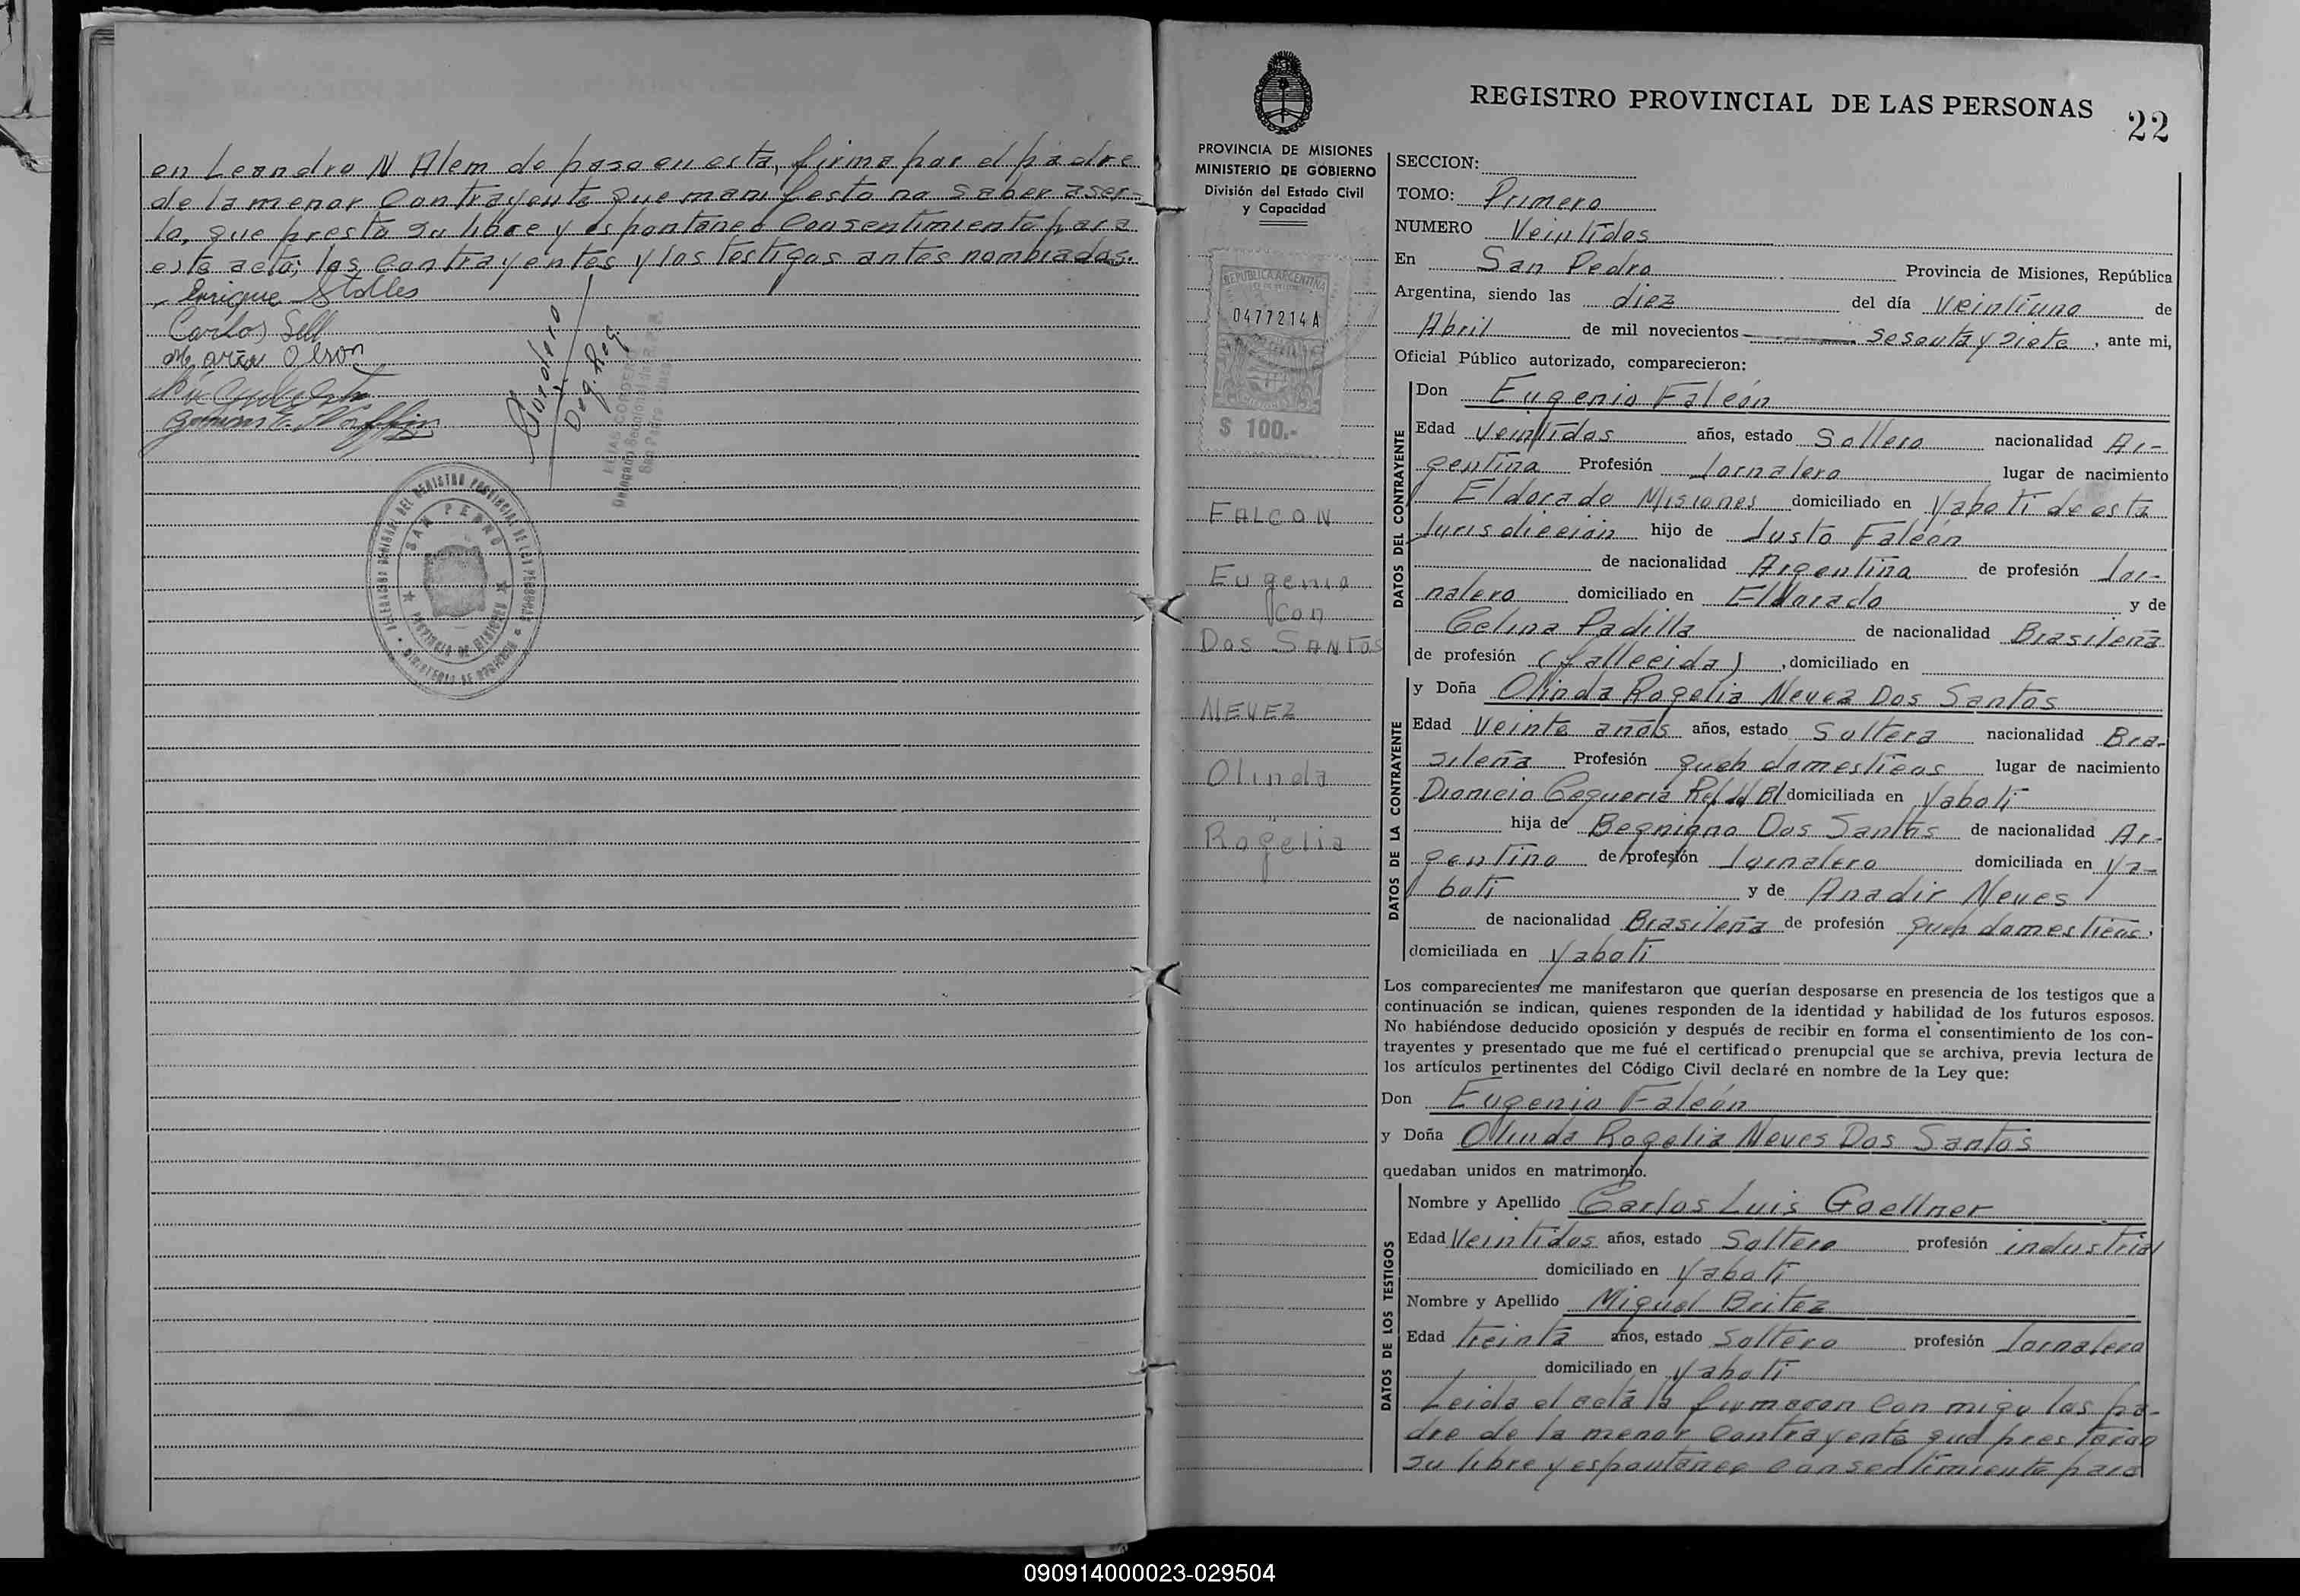 en Leandro N Alem de paso en esta, firma por el padre
de la menor Contrayente que manifesto no saber aser-
lo, que presta su libre y espontaneo Consentimiento para
este acto; los Contrayentes y los testigos antes nombrados.
Enrique Stolles
Carlos Sell
Maria Olson
DELEGACION SECCIONAL DEL REGISTRO PROVINCIAL DE LAS PERSONAS
SAN PEDRO
PROVINCIA DE MISIONES
MINISTERIO DE GOBIERNO
REGISTRO PROVINCIAL DE LAS PERSONAS
22
PROVINCIA DE MISIONES
MINISTERIO DE GOBIERNO
División del Estado Civil
y Capacidad
REPUBLICA ARGENTINA
0477214A
$ 100.-
FALCON
Eugenio
Con
Dos SANTOS
NEVEZ
Olinda
Rogelia
SECCION:
TOMO: Primero
NUMERO Veintidos
En San Pedro Provincia de Misiones, República
Argentina, siendo las diez del día veintiuno de
Abril de mil novecientos sesenta y siete, ante mi,
Oficial Público autorizado, comparecieron:
DATOS DEL CONTRAYENTE
Don Eugenio Falcón
Edad Veintidos años, estado Soltero nacionalidad Ar-
gentina Profesión Jornalero lugar de nacimiento
Eldorado Misiones domiciliado en Yaboti de esta
Jurisdicción hijo de Justo Falcón
de nacionalidad Argentina de profesión Jor-
nalero domiciliado en Eldorado y de
Celina Padilla de nacionalidad Brasileña
de profesión (fallecida), domiciliado en
DATOS DE LA CONTRAYENTE
y Doña Olinda Rogelia Nevez Dos Santos
Edad Veinte años años, estado Soltera nacionalidad Bra-
sileña Profesión queh domesticos lugar de nacimiento
Dionicio Cequeria Rep. del Bl domiciliada en Yaboti
hija de Begnigno Dos Santos de nacionalidad Ar-
gentino de profesión Jornalero domiciliada en Ya-
boti y de Anadir Neves
de nacionalidad Brasileña de profesión queh domesticos.
domiciliada en Yaboti
Los comparecientes me manifestaron que querían desposarse en presencia de los testigos que a
continuación se indican, quienes responden de la identidad y habilidad de los futuros esposos.
No habiéndose deducido oposición y después de recibir en forma el consentimiento de los con-
trayentes y presentado que me fué el certificado prenupcial que se archiva, previa lectura de
los artículos pertinentes del Código Civil declaré en nombre de la Ley que:
Don Eugenio Falcón
y Doña Olinda Rogelia Neves Dos Santos
quedaban unidos en matrimonio.
DATOS DE LOS TESTIGOS
Nombre y Apellido Carlos Luis Goellner
Edad Veintidos años, estado Soltero profesión industrial
domiciliado en Yaboti
Nombre y Apellido Miguel Britez
Edad treinta años, estado Soltero profesión Jornalero
domiciliado en Yaboti
Leida el acta la firmaron con migo los pa-
dre de la menor Contrayente que prestaron
su libre y espontaneo consentimiento para
090914000023-029504